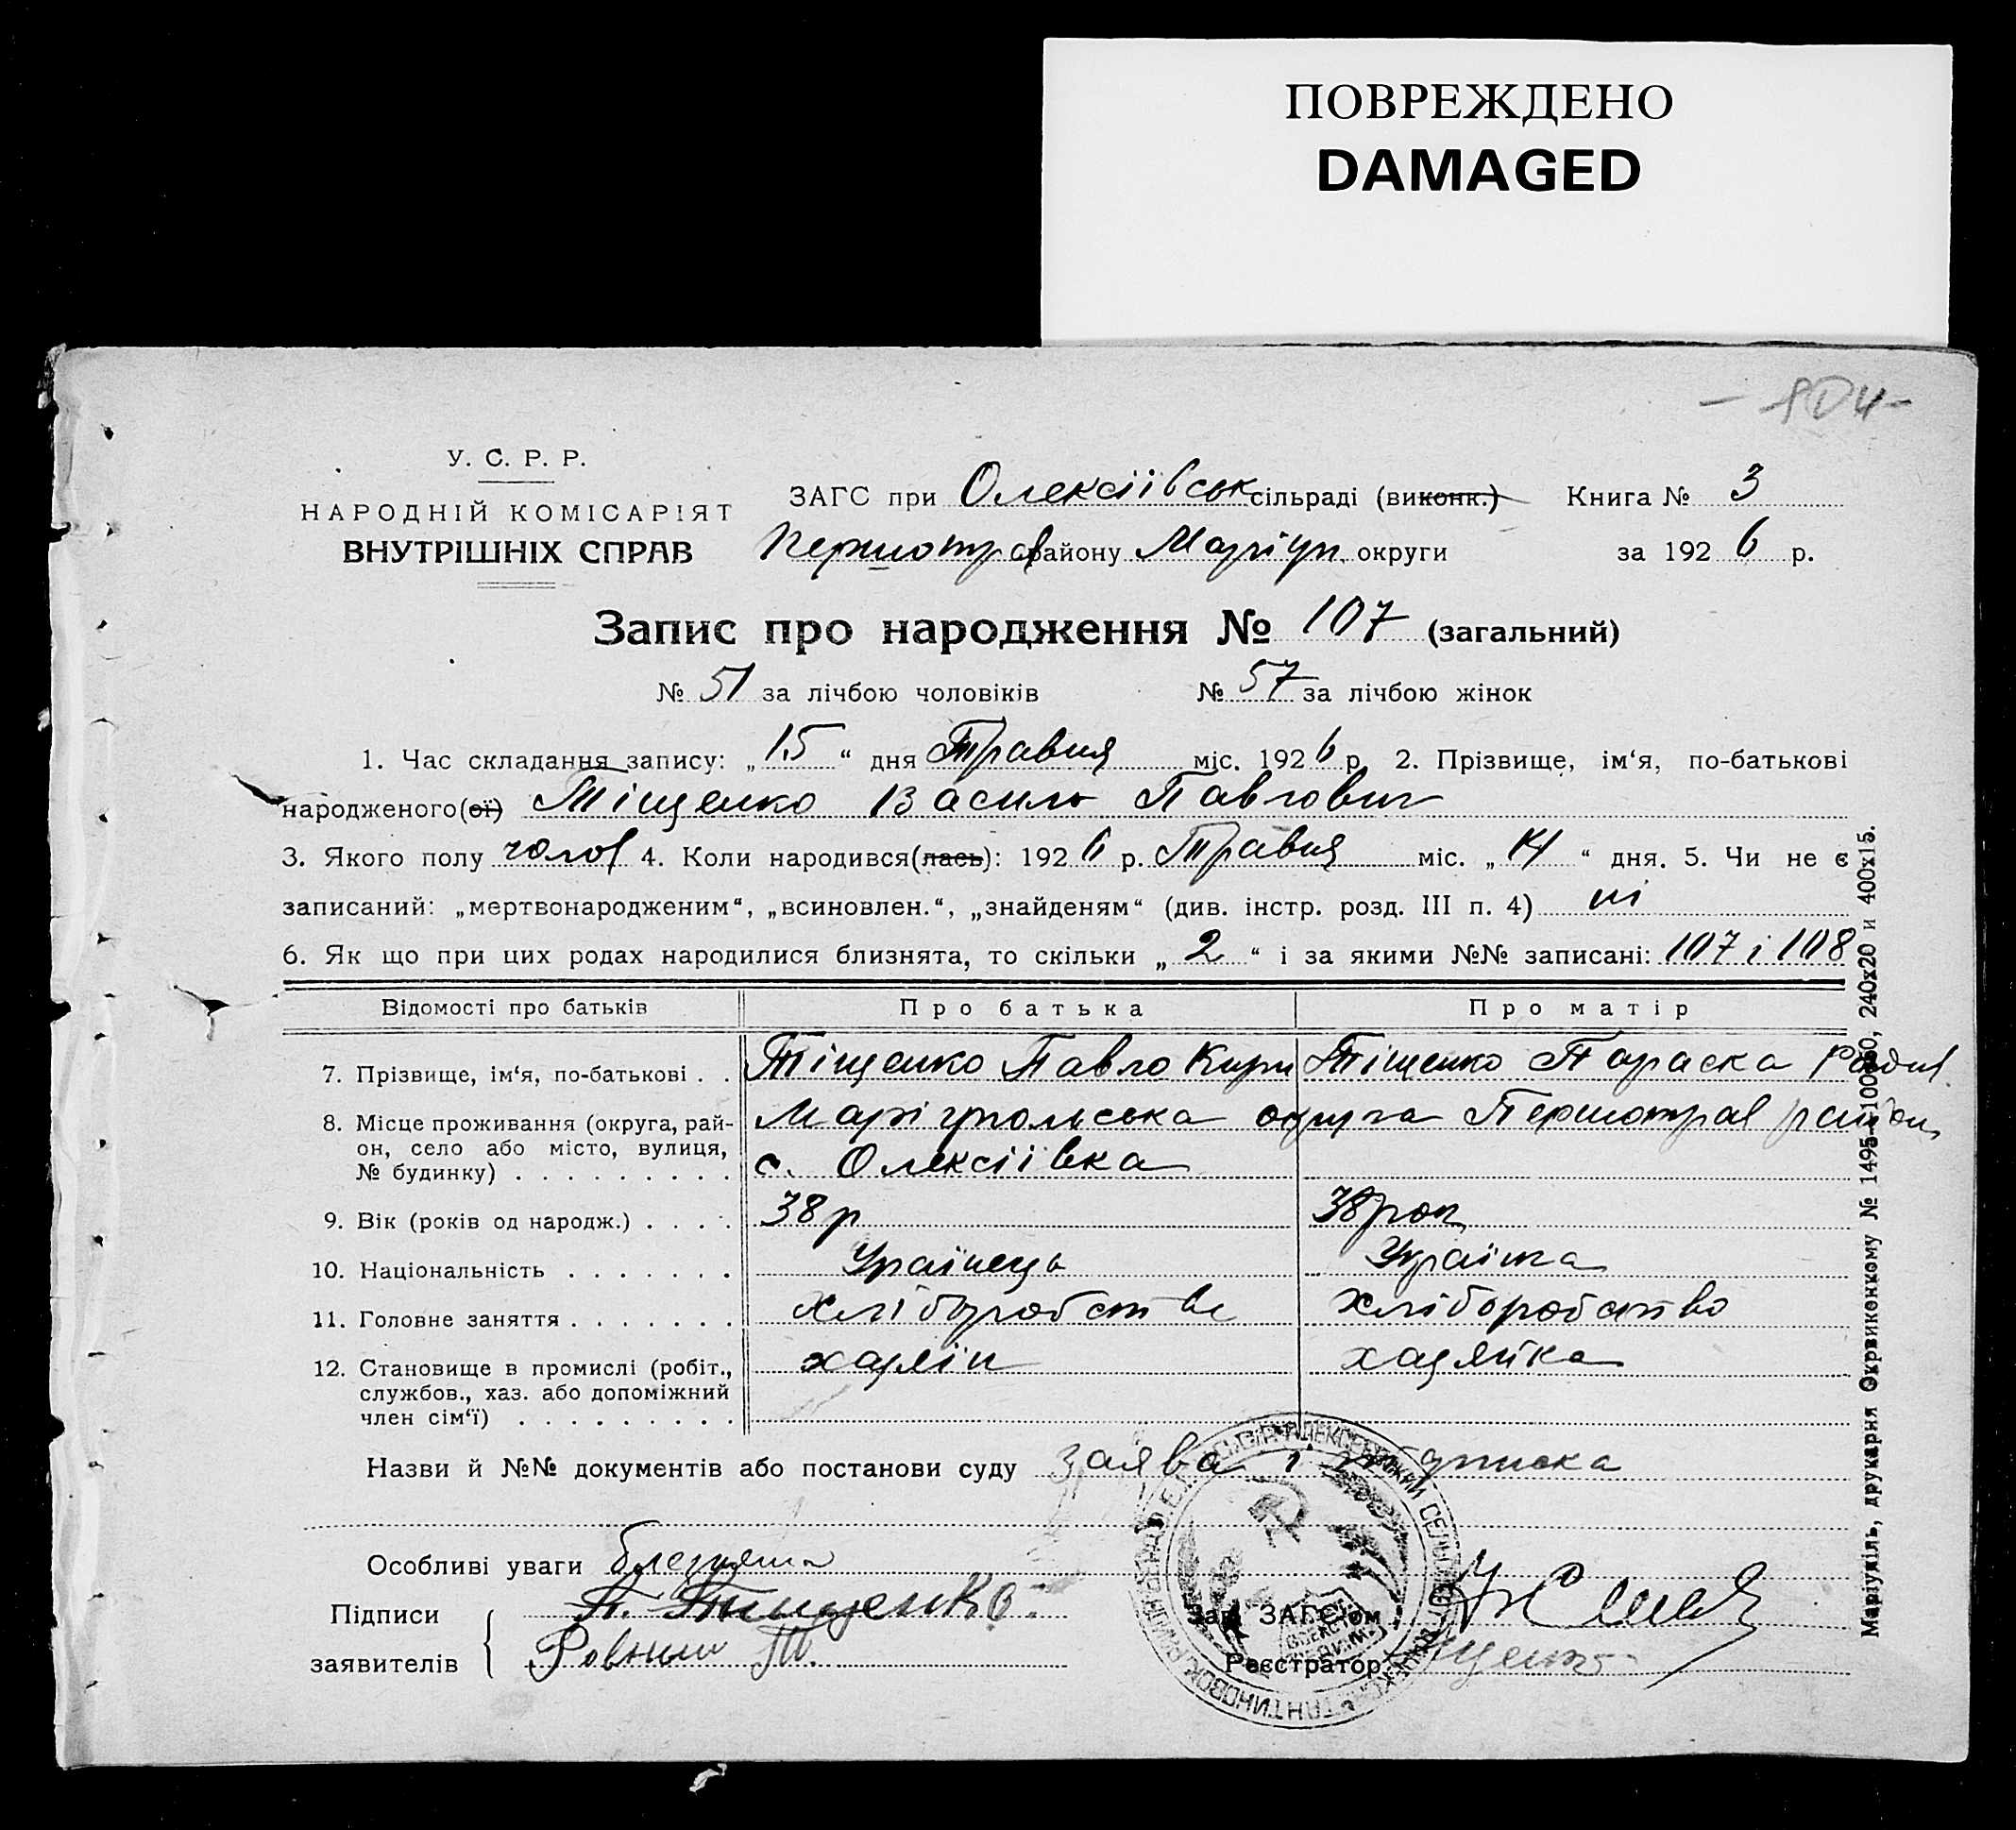 ПОВРЕЖДЕНО
DAMAGED
У. С. Р. Р.
НАРОДНІЙ КОМІСАРІЯТ
ВНУТРІШНІХ СПРАВ
ЗАГС при Олексіївськ сільраді (виконк.) Книга № 3
Першотрав району Маріуп. округи за 1926 р.
Запис про народження № 107 (загальний)
№ 51 за лічбою чоловіків № 57 за лічбою жінок
1. Час складання запису: „15“ дня Травня міс. 1926 р. 2. Прізвище, ім‘я, по-батькові
народженого(ої) Тіщенко Василь Павлович
3. Якого полу чолов 4. Коли народився(лась): 1926 р. Травня міс. „14“ дня. 5. Чи не є
записаний: „мертвонародженим“, „всиновлен.“, „знайденям“ (див. інстр. розд. III п. 4) ні
6. Як що при цих родах народилися близнята, то скільки „2“ і за якими №№ записані: 107 і 108
Відомості про батьків Про батька Про матір
7. Прізвище, ім‘я, по-батькові . . Тіщенко Павло Кири Тіщенко Параска Родив.
8. Місце проживання (округа, рай- Маріупольська округа Першотрав район
он, село або місто, вулиця, с. Олексіївка
№ будинку) . . . . . . . . .
9. Вік (років од народж.) . . . . 38 р 38 рок
10. Національність . . . . . . . Украінець Украінка
11. Головне заняття . . . . . . . хліборобство хліборобство
12. Становище в промислі (робіт., хазяїн хазяйка
службов., хаз. або допоміжний
член сім‘ї) . . . . . . . . .
Назви й №№ документів або постанови суду заява і підписка
Особливі уваги блезнята
Підписи П. Тищенко
заявителів Ровним Т.
Зав. ЗАГС‘ом
Реєстратор
Маріупіль, друкарня Окрвиконкому № 1495—100000, 240х20 и 400х15.